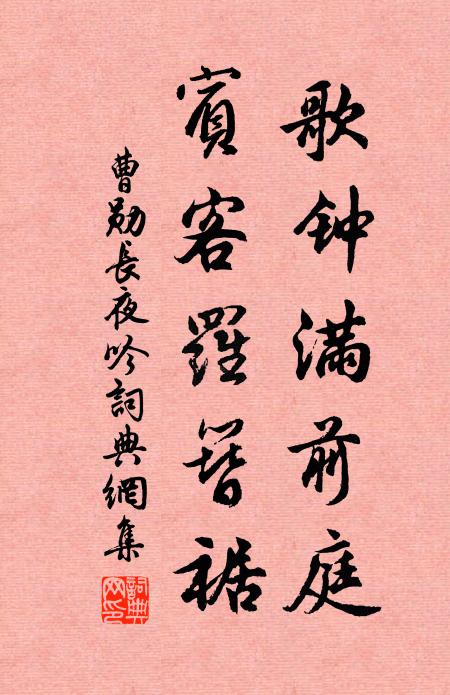 歌钟满前庭
賓客羅簪裾
曹勛長夜吟詞典網集
詞典网印